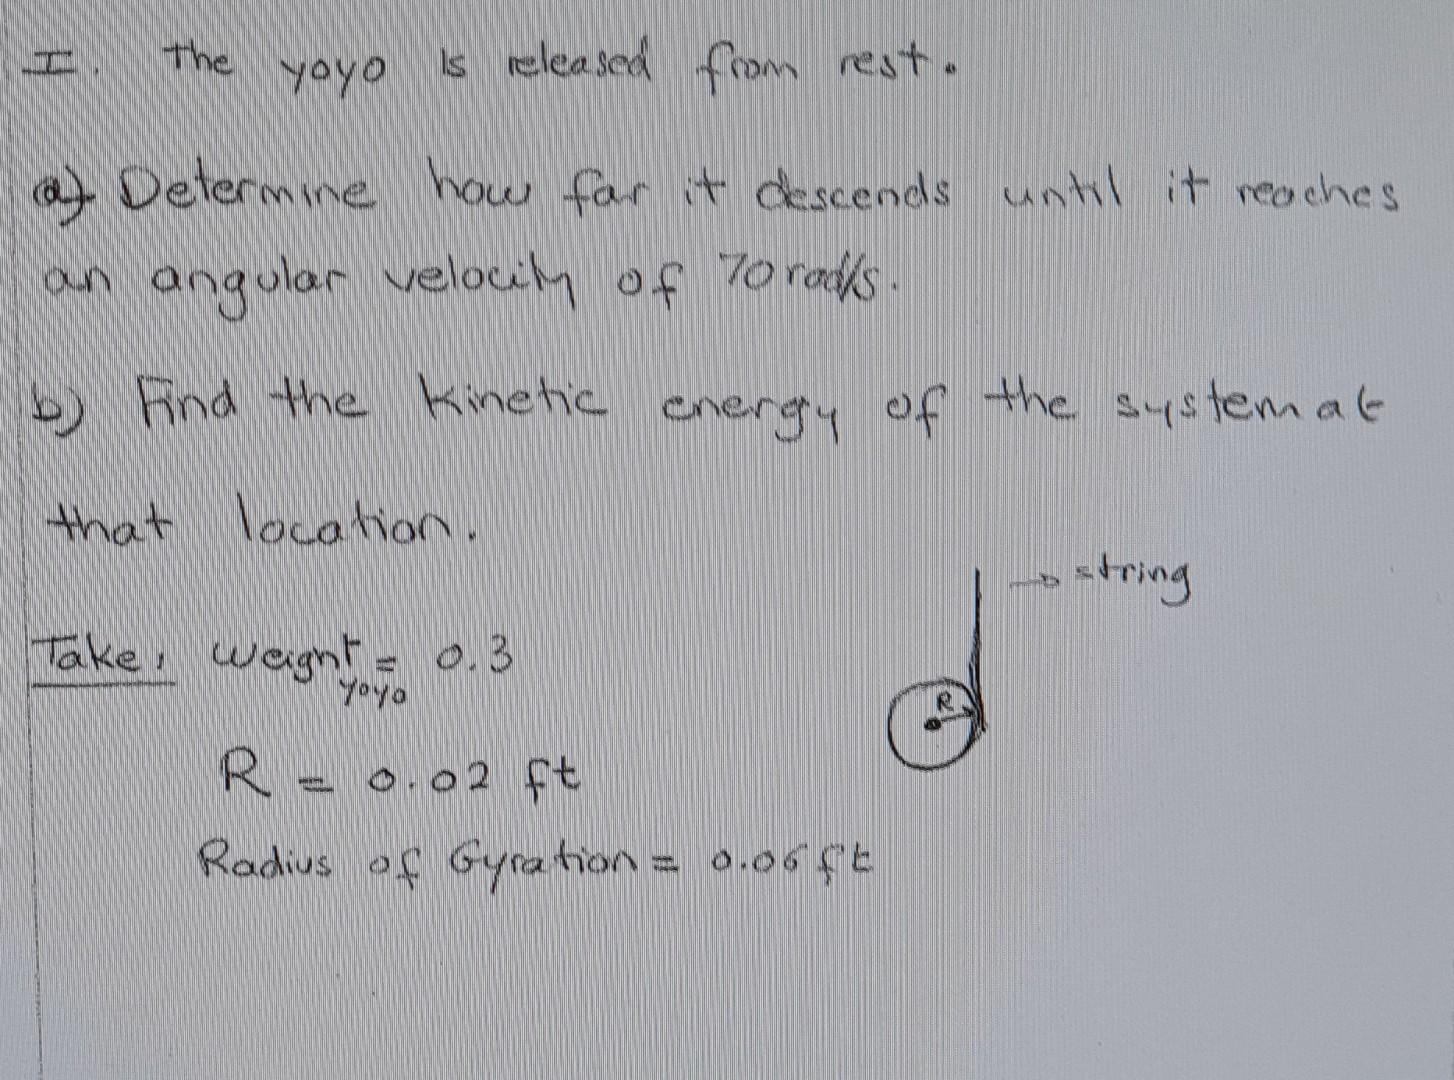 I. The yoyo is released from rest.
a) Determine how far it descends until it reaches
an angular velocity of 70 rad/s.
b) Find the kinetic energy of the system at
that location.
→ string
Take: Weight yoyo = 0.3
R
R = 0.02 ft
Radius of Gyration = 0.06 ft